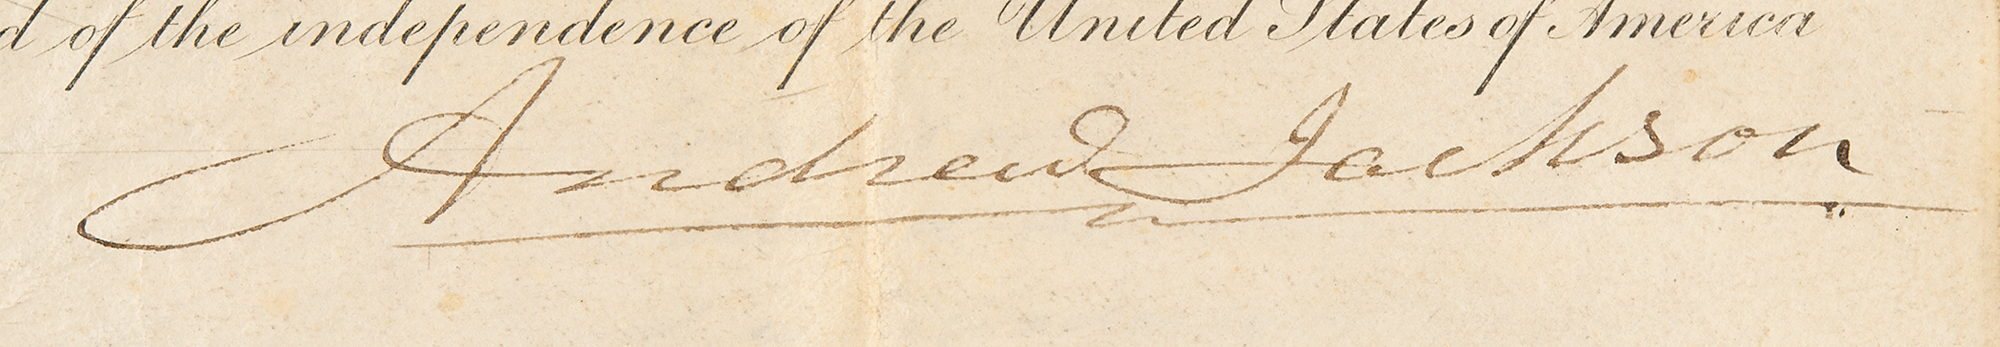 d of the independence of the United States of America
Andrew Jackson